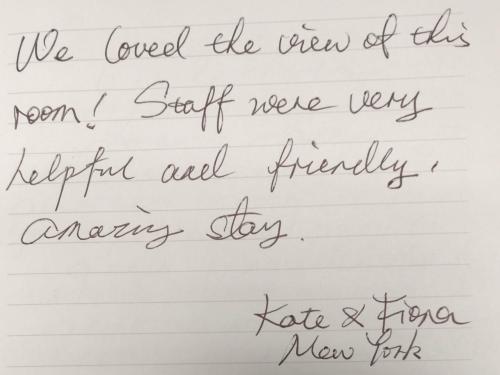 We loved the view of this
room! Staff were very
helpful and friendly,
amazing stay.
Kate & Fiona
New York